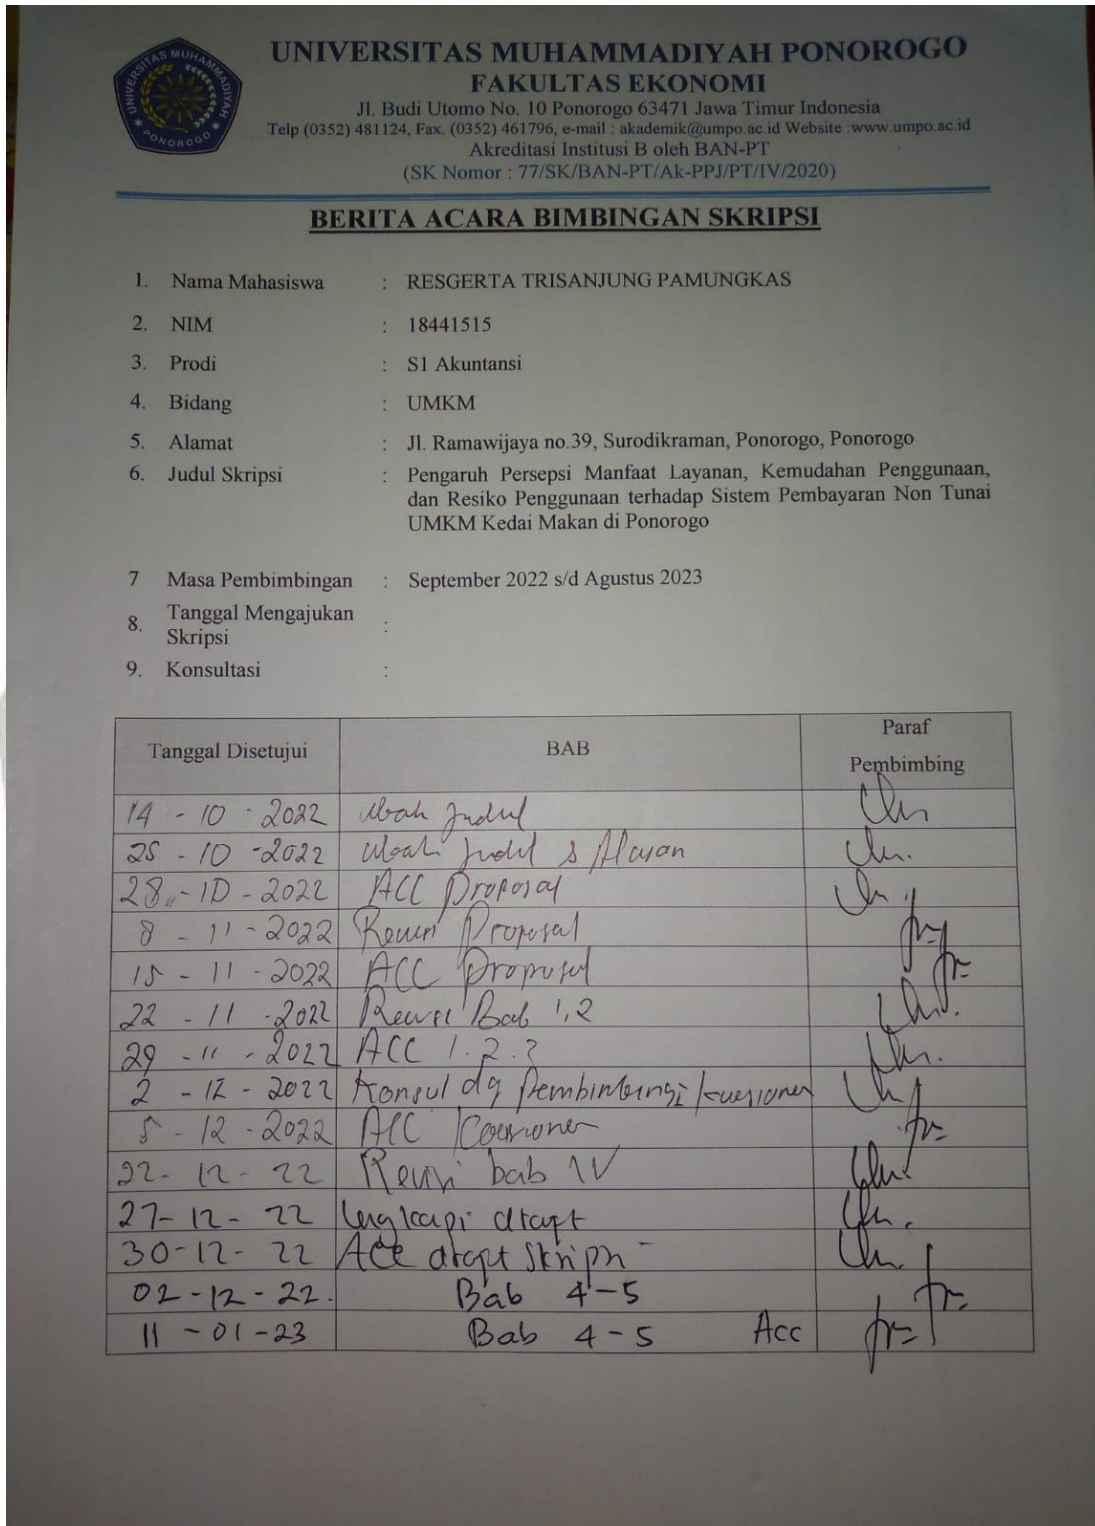 UNIVERSITAS MUHAMMADIYAH PONOROGO
UNIVERSITAS MUHAMMADIYAH PONOROGO
FAKULTAS EKONOMI
Jl. Budi Utomo No. 10 Ponorogo 63471 Jawa Timur Indonesia
Telp (0352) 481124, Fax. (0352) 461796, e-mail : akademik@umpo.ac.id Website :www.umpo.ac.id
Akreditasi Institusi B oleh BAN-PT
(SK Nomor : 77/SK/BAN-PT/Ak-PPJ/PT/IV/2020)
BERITA ACARA BIMBINGAN SKRIPSI
1. Nama Mahasiswa : RESGERTA TRISANJUNG PAMUNGKAS
2. NIM : 18441515
3. Prodi : S1 Akuntansi
4. Bidang : UMKM
5. Alamat : Jl. Ramawijaya no.39, Surodikraman, Ponorogo, Ponorogo
6. Judul Skripsi : Pengaruh Persepsi Manfaat Layanan, Kemudahan Penggunaan,
dan Resiko Penggunaan terhadap Sistem Pembayaran Non Tunai
UMKM Kedai Makan di Ponorogo
7 Masa Pembimbingan : September 2022 s/d Agustus 2023
8. Tanggal Mengajukan
Skripsi :
9. Konsultasi :
Tanggal Disetujui BAB Paraf
Pembimbing
14 - 10 - 2022 Ubah Judul
25 - 10 - 2022 Ubah Judul & Alasan
28 - 10 - 2022 ACC Proposal
8 - 11 - 2022 Revisi Proposal
15 - 11 - 2022 ACC Proposal
22 - 11 - 2022 Revisi Bab 1,2
29 - 11 - 2022 ACC 1.2.3
2 - 12 - 2022 Konsul dg Pembimbing kuesioner
5 - 12 - 2022 ACC
22 - 12 - 22 Revisi bab IV
27 - 12 - 22 lengkapi draft
30 - 12 - 22 Acc draft Skripsi
02 - 12 - 22. Bab 4 - 5
11 - 01 - 23 Bab 4 - 5 Acc